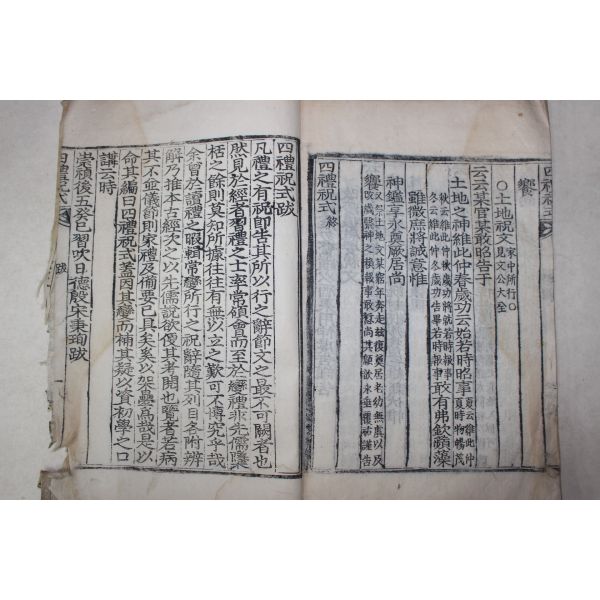 四禮祝式
饗
○土地祝文 家中所行○見文公大全
云云某官某敢昭告于
土地之神維此仲春歲功云始若時昭事 夏云維此仲夏時物暢茂
秋云維此仲秋歲功將就若時報事冬云維此仲冬歲功告畢若時報事 敢有弗欽蘋藻
雖微庶將誠意惟
神鑑享永奠厥居尚
饗
四禮祝式 終
四禮祝式跋
凡禮之有祝卽告其所以行之辭節文之最不可闕者也
然見於經者習禮之士率常領會而至於變禮非先儒隱
栝之餘則莫知所據往往有無以立之歎可不博究乎哉
余曾於讀禮之暇輯常變所行之祝辭隨其列目各附辨
解乃推本古經次之以先儒說欲便其考閱也覽者若病
其不並儀節則家禮及備要已具矣奚以架疊爲哉是以
命其編曰四禮祝式蓋因其變而補其疑以資初學之口
講云時
崇禎後五癸巳習吹日德殷宋秉珣跋
四禮祝式
跋
一